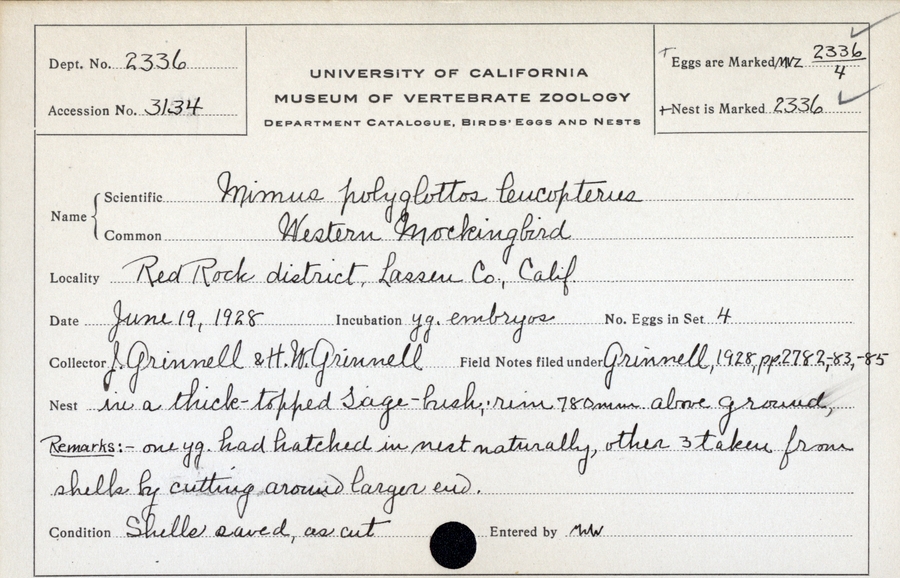 Dept. No. 2336
Accession No. 3134
UNIVERSITY OF CALIFORNIA
MUSEUM OF VERTEBRATE ZOOLOGY
DEPARTMENT CATALOGUE, BIRDS' EGGS AND NESTS
Eggs are Marked MVZ 2336/4
Nest is Marked 2336
Name
Scientific Mimus polyglottos leucopterus
Common Western Mockingbird
Locality Red Rock district, Lassen Co., Calif.
Date June 19, 1928 Incubation yg. embryos No. Eggs in Set 4
Collector J. Grinnell & H.W. Grinnell Field Notes filed under Grinnell, 1928, pp. 2782,-83,-85
Nest in a thick-topped Sage-bush; rim 780mm above ground,
Remarks:- one yg. had hatched in nest naturally, other 3 taken from
shells by cutting around larger end.
Condition Shells saved, as cut Entered by